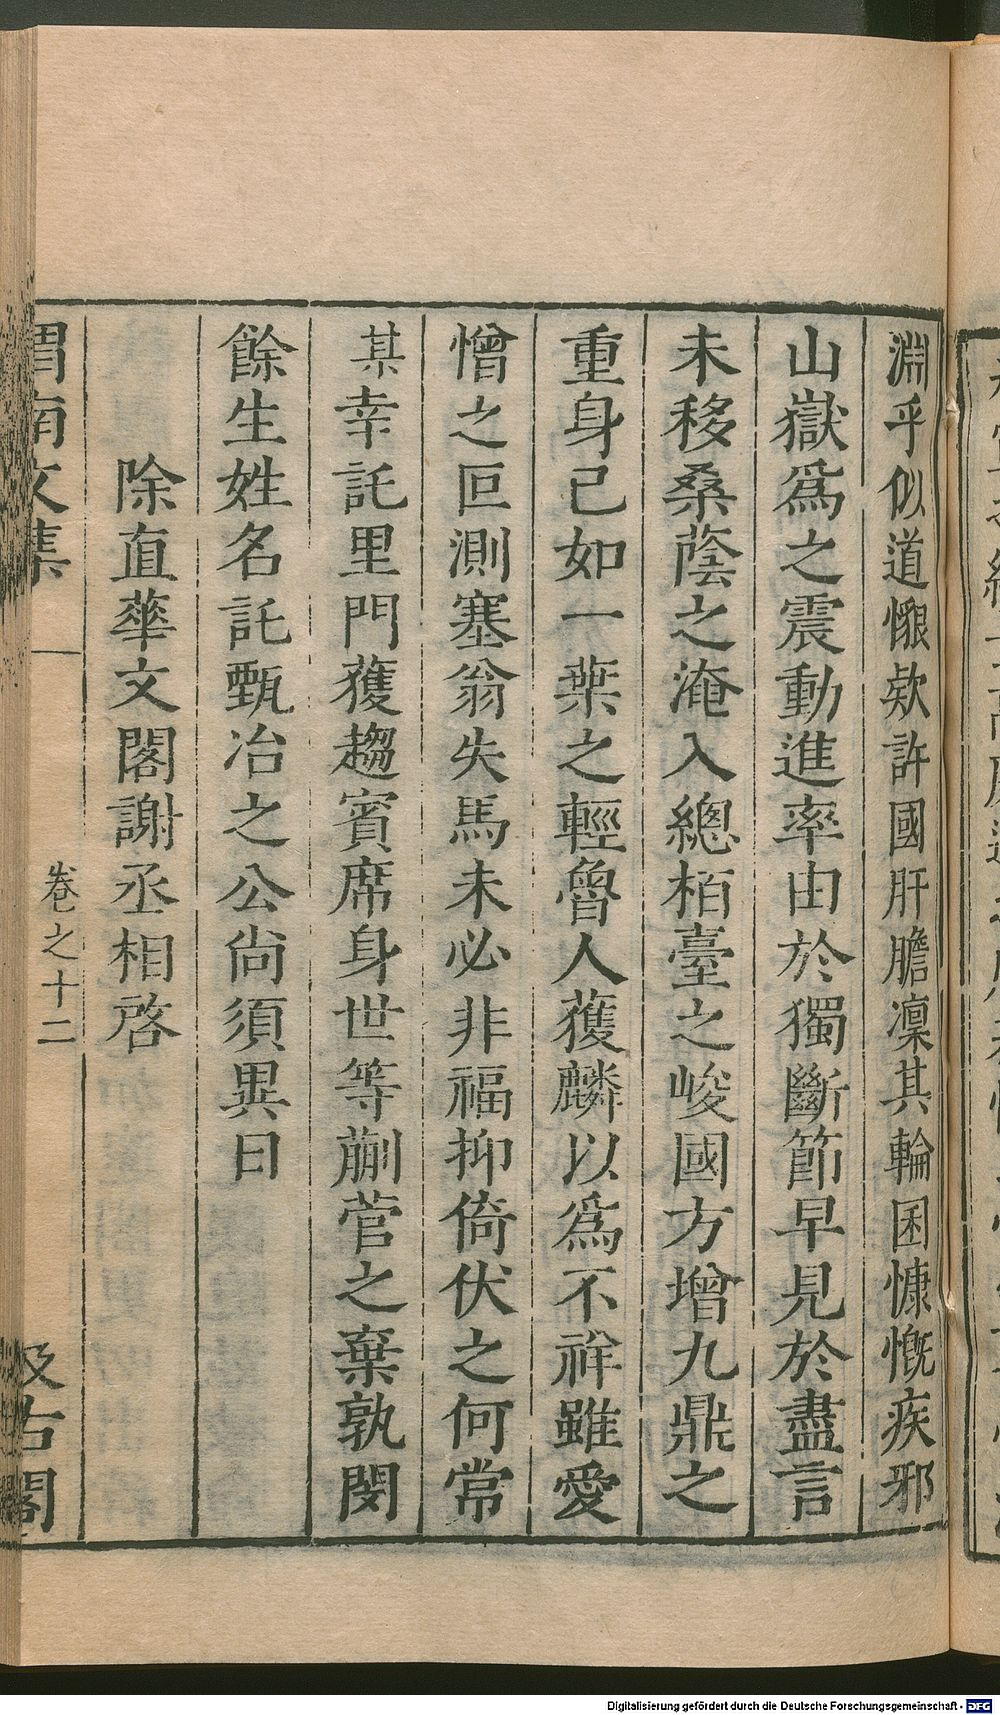 淵乎似道懇欵許國肝膽凜其輪囷慷慨疾邪
山嶽爲之震動進率由於獨斷節早見於盡言
未移桑蔭之淹入總栢臺之峻國方增九鼎之
重身已如一葉之輕魯人獲麟以爲不祥雖愛
憎之叵測塞翁失馬未必非福抑倚伏之何常
某幸託里門獲趨賓席身世等蒯菅之棄孰閔
餘生姓名託甄冶之公尙須異日
除直華文閣謝丞相啓
渭南文集
卷之十二
汲古閣
Digitalisierung gefördert durch die Deutsche Forschungsgemeinschaft - DFG